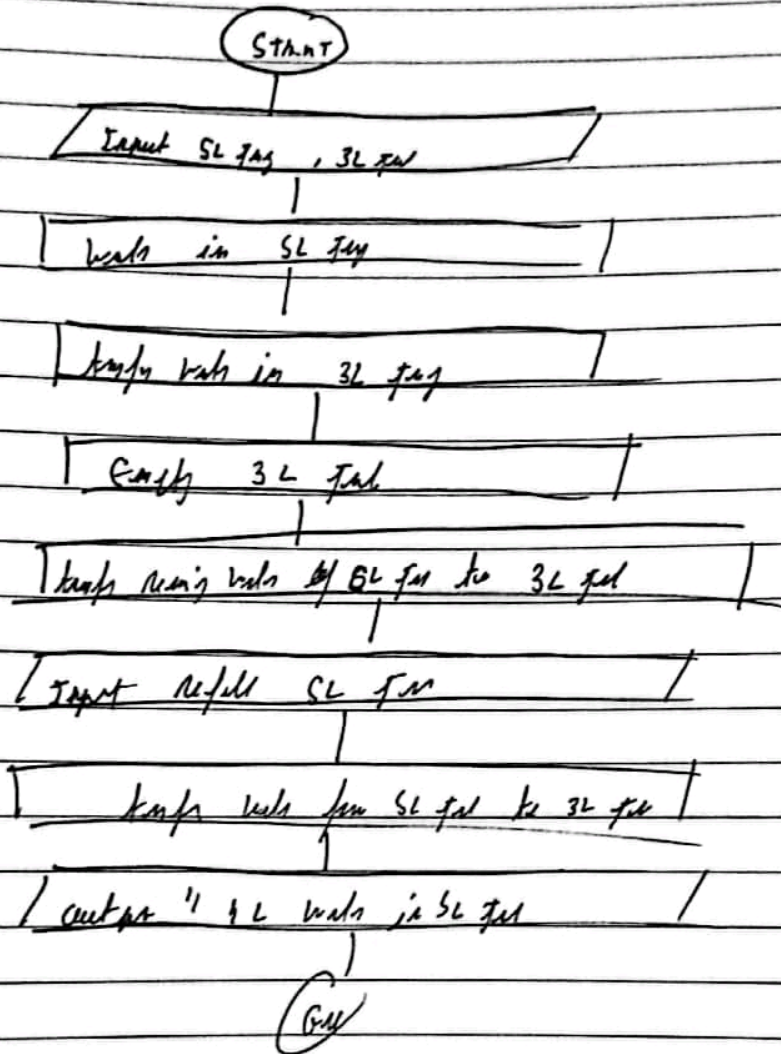 Start
Input 5L Jug, 3L Jug
Water in 5L Jug
water in 3L Jug
Empty 3L Jug
water of 5L Jug to 3L Jug
Input refill 5L Jug
water from 5L Jug to 3L Jug
output "4L water in 5L Jug
End